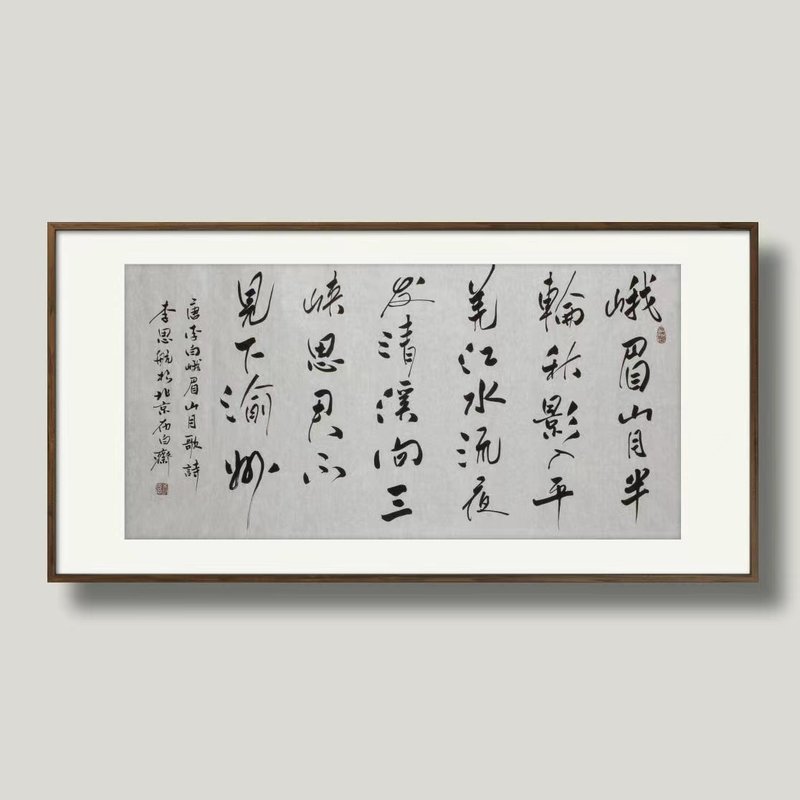 峨眉山月半
輪秋影入平
羌江水流夜
发清溪向三
峡思君不
見下渝州
唐李白峨眉山月歌詩
李思航於北京白齋